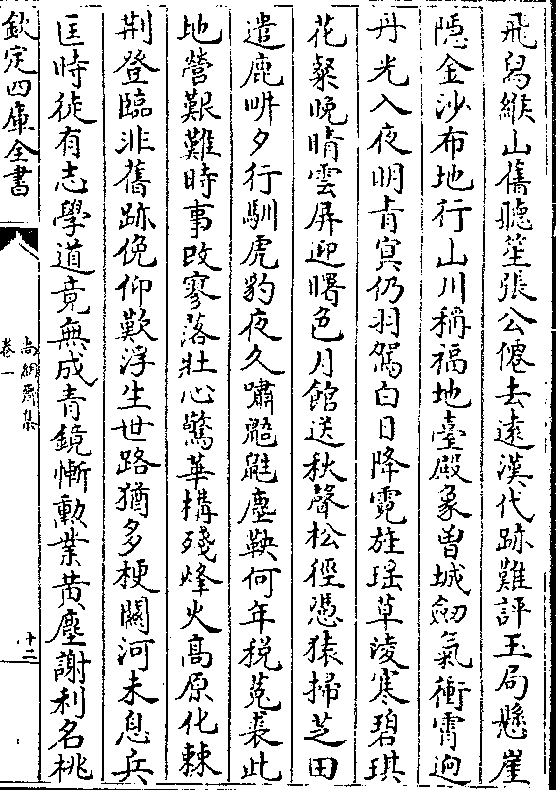 飛舃緱山舊聽笙張公僊去遠漢代跡難評玉局懸崖
隱金沙布地行山川稱福地臺殿象曽城劒氣衝霄迥
丹光入夜明青冥仍羽駕白日降霓旌瑶草凌寒碧琪
花粲晩晴雲屏迎曙色月館送秋聲松徑憑猿掃芝田
遣鹿畊夕行馴虎豹夜久嘯鼯鼪塵鞅何年税菟裘此
地營艱難時事改寥落壯心驚華構殘烽火髙原化棘
荆登臨非舊跡俛仰歎浮生世路猶多梗關河未息兵
匡時徒有志學道竟無成青鏡慚勲業黄塵謝利名桃
欽定四庫全書
尚絅齋集
卷一
十二